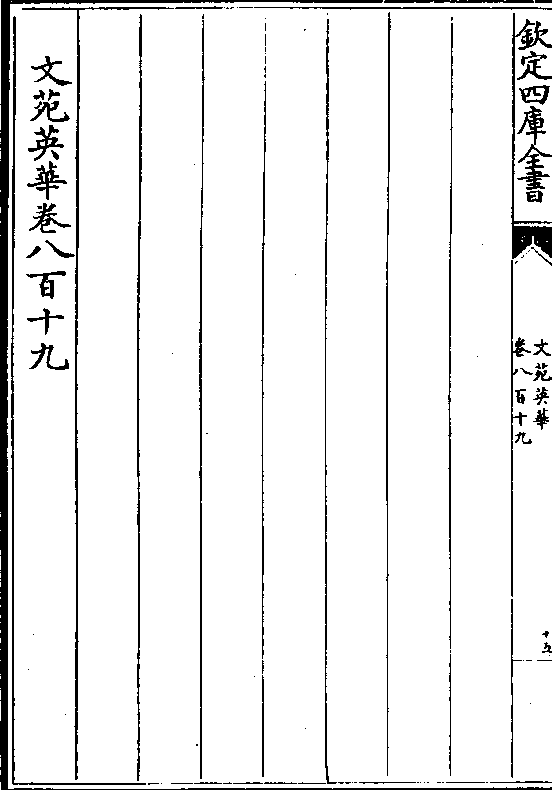 欽定四庫全書
文苑英華
卷八百十九
十五
文苑英華卷八百十九